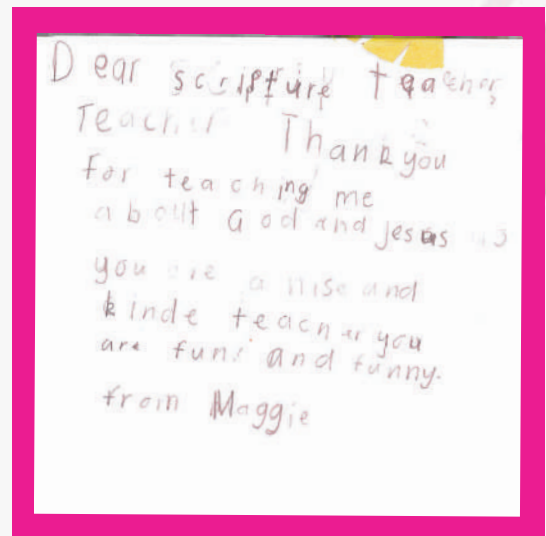 Dear scripture teacher
Teacher Thank you
for teaching me
about God and jesus
you are a nise and
kinde teacher you
are fun and funny.
from Maggie